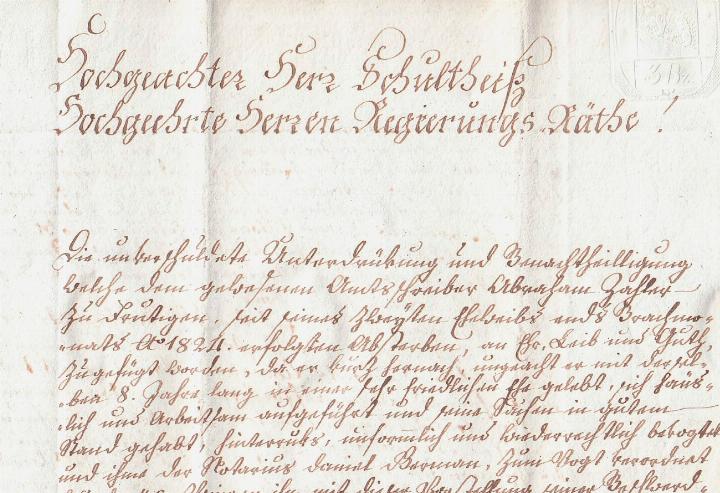 Hochgeachter Herr Schultheiß
Hochgeehrte Herren Regierungs Räthe!
Die unverschuldete Unterdrükung und Benachtheilligung
welche dem gewesenen Amtsschreiber Abraham Zahler
zu Frutigen, seit seines zweyten Eheweibs ends Brachmo-
-nats Ao 1824. erfolgten Absterben, an Ehr, Leib und Guth,
zugefügt worden, da er kurz hernach, ungeacht er mit dersel-
-ben 8. Jahre lang in einer sehr friedlichen Ehe gelebt, sich haus-
-lich und Arbeitsam aufgeführt und seine Sachen in gutem
Stand gehabt, hinterruks, unförmlich und wiederrechtlich bevogtet
und ihme der Notarius Daniel Berman, zum Vogt verordnet
ihn mit dieser Vorstellung seiner Beschwerd-